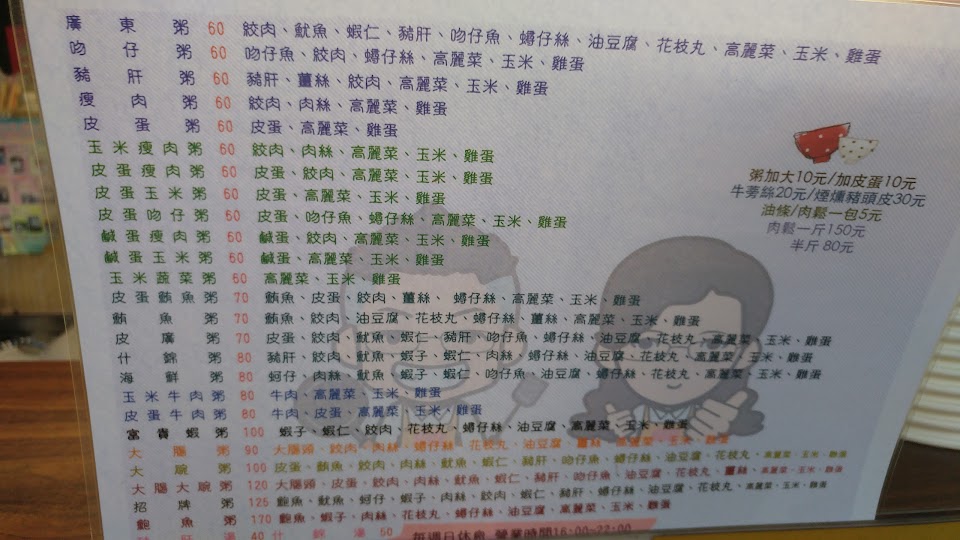 廣東粥 60 餃肉、魷魚、蝦仁、豬肝、吻仔魚、蟳仔絲、油豆腐、花枝丸、高麗菜、玉米、雞蛋
吻仔粥 60 吻仔魚、餃肉、蟳仔絲、高麗菜、玉米、雞蛋
豬肝粥 60 豬肝、薑絲、餃肉、高麗菜、玉米、雞蛋
瘦肉粥 60 餃肉、肉絲、高麗菜、玉米、雞蛋
皮蛋粥 60 皮蛋、高麗菜、雞蛋
玉米瘦肉粥 60 餃肉、肉絲、高麗菜、玉米、雞蛋
皮蛋瘦肉粥 60 皮蛋、餃肉、高麗菜、玉米、雞蛋
皮蛋玉米粥 60 皮蛋、高麗菜、玉米、雞蛋
皮蛋吻仔粥 60 皮蛋、吻仔魚、蟳仔絲、高麗菜、玉米、雞蛋
鹹蛋瘦肉粥 60 鹹蛋、餃肉、高麗菜、玉米、雞蛋
鹹蛋玉米粥 60 鹹蛋、高麗菜、玉米、雞蛋
玉米蔬菜粥 60 高麗菜、玉米、雞蛋
皮蛋鮪魚粥 70 鮪魚、皮蛋、餃肉、薑絲、蟳仔絲、高麗菜、玉米、雞蛋
鮪魚粥 70 鮪魚、餃肉、油豆腐、花枝丸、蟳仔絲、薑絲、高麗菜、玉米、雞蛋
皮廣粥 70 皮蛋、餃肉、魷魚、蝦仁、豬肝、吻仔魚、蟳仔絲、油豆腐、花枝丸、高麗菜、玉米、雞蛋
什錦粥 80 豬肝、餃肉、魷魚、蝦子、蝦仁、肉絲、蟳仔絲、油豆腐、花枝丸、高麗菜、玉米、雞蛋
海鮮粥 80 蚵仔、肉絲、魷魚、蝦子、蝦仁、吻仔魚、油豆腐、蟳仔絲、花枝丸、高麗菜、玉米、雞蛋
玉米牛肉粥 80 牛肉、高麗菜、玉米、雞蛋
皮蛋牛肉粥 80 牛肉、皮蛋、高麗菜、玉米、雞蛋
富貴蝦粥 100 蝦子、蝦仁、餃肉、花枝丸、蟳仔絲、油豆腐、高麗菜、玉米、雞蛋
大腸粥 90 大腸頭、餃肉、肉絲、蟳仔絲、花枝丸、油豆腐、薑絲、高麗菜、玉米、雞蛋
大碗粥 100 皮蛋、鮪魚、餃肉、肉絲、魷魚、蝦仁、豬肝、吻仔魚、蟳仔絲、油豆腐、花枝丸、高麗菜、玉米、雞蛋
大腸大碗粥 120 大腸頭、皮蛋、餃肉、肉絲、魷魚、蝦仁、豬肝、吻仔魚、油豆腐、花枝丸、薑絲、高麗菜、玉米、雞蛋
招牌粥 125 鮑魚、魷魚、蚵仔、蝦子、肉絲、餃肉、蝦仁、豬肝、蟳仔絲、油豆腐、花枝丸、高麗菜、玉米、雞蛋
鮑魚粥 170 鮑魚、蝦子、肉絲、花枝丸、蟳仔絲、油豆腐、高麗菜、玉米、雞蛋
豬肝湯 40 什錦湯 50 每週日休息 營業時間16:00~22:00
粥加大10元/加皮蛋10元
牛蒡絲20元/煙燻豬頭皮30元
油條/肉鬆一包5元
肉鬆一斤150元
半斤 80元